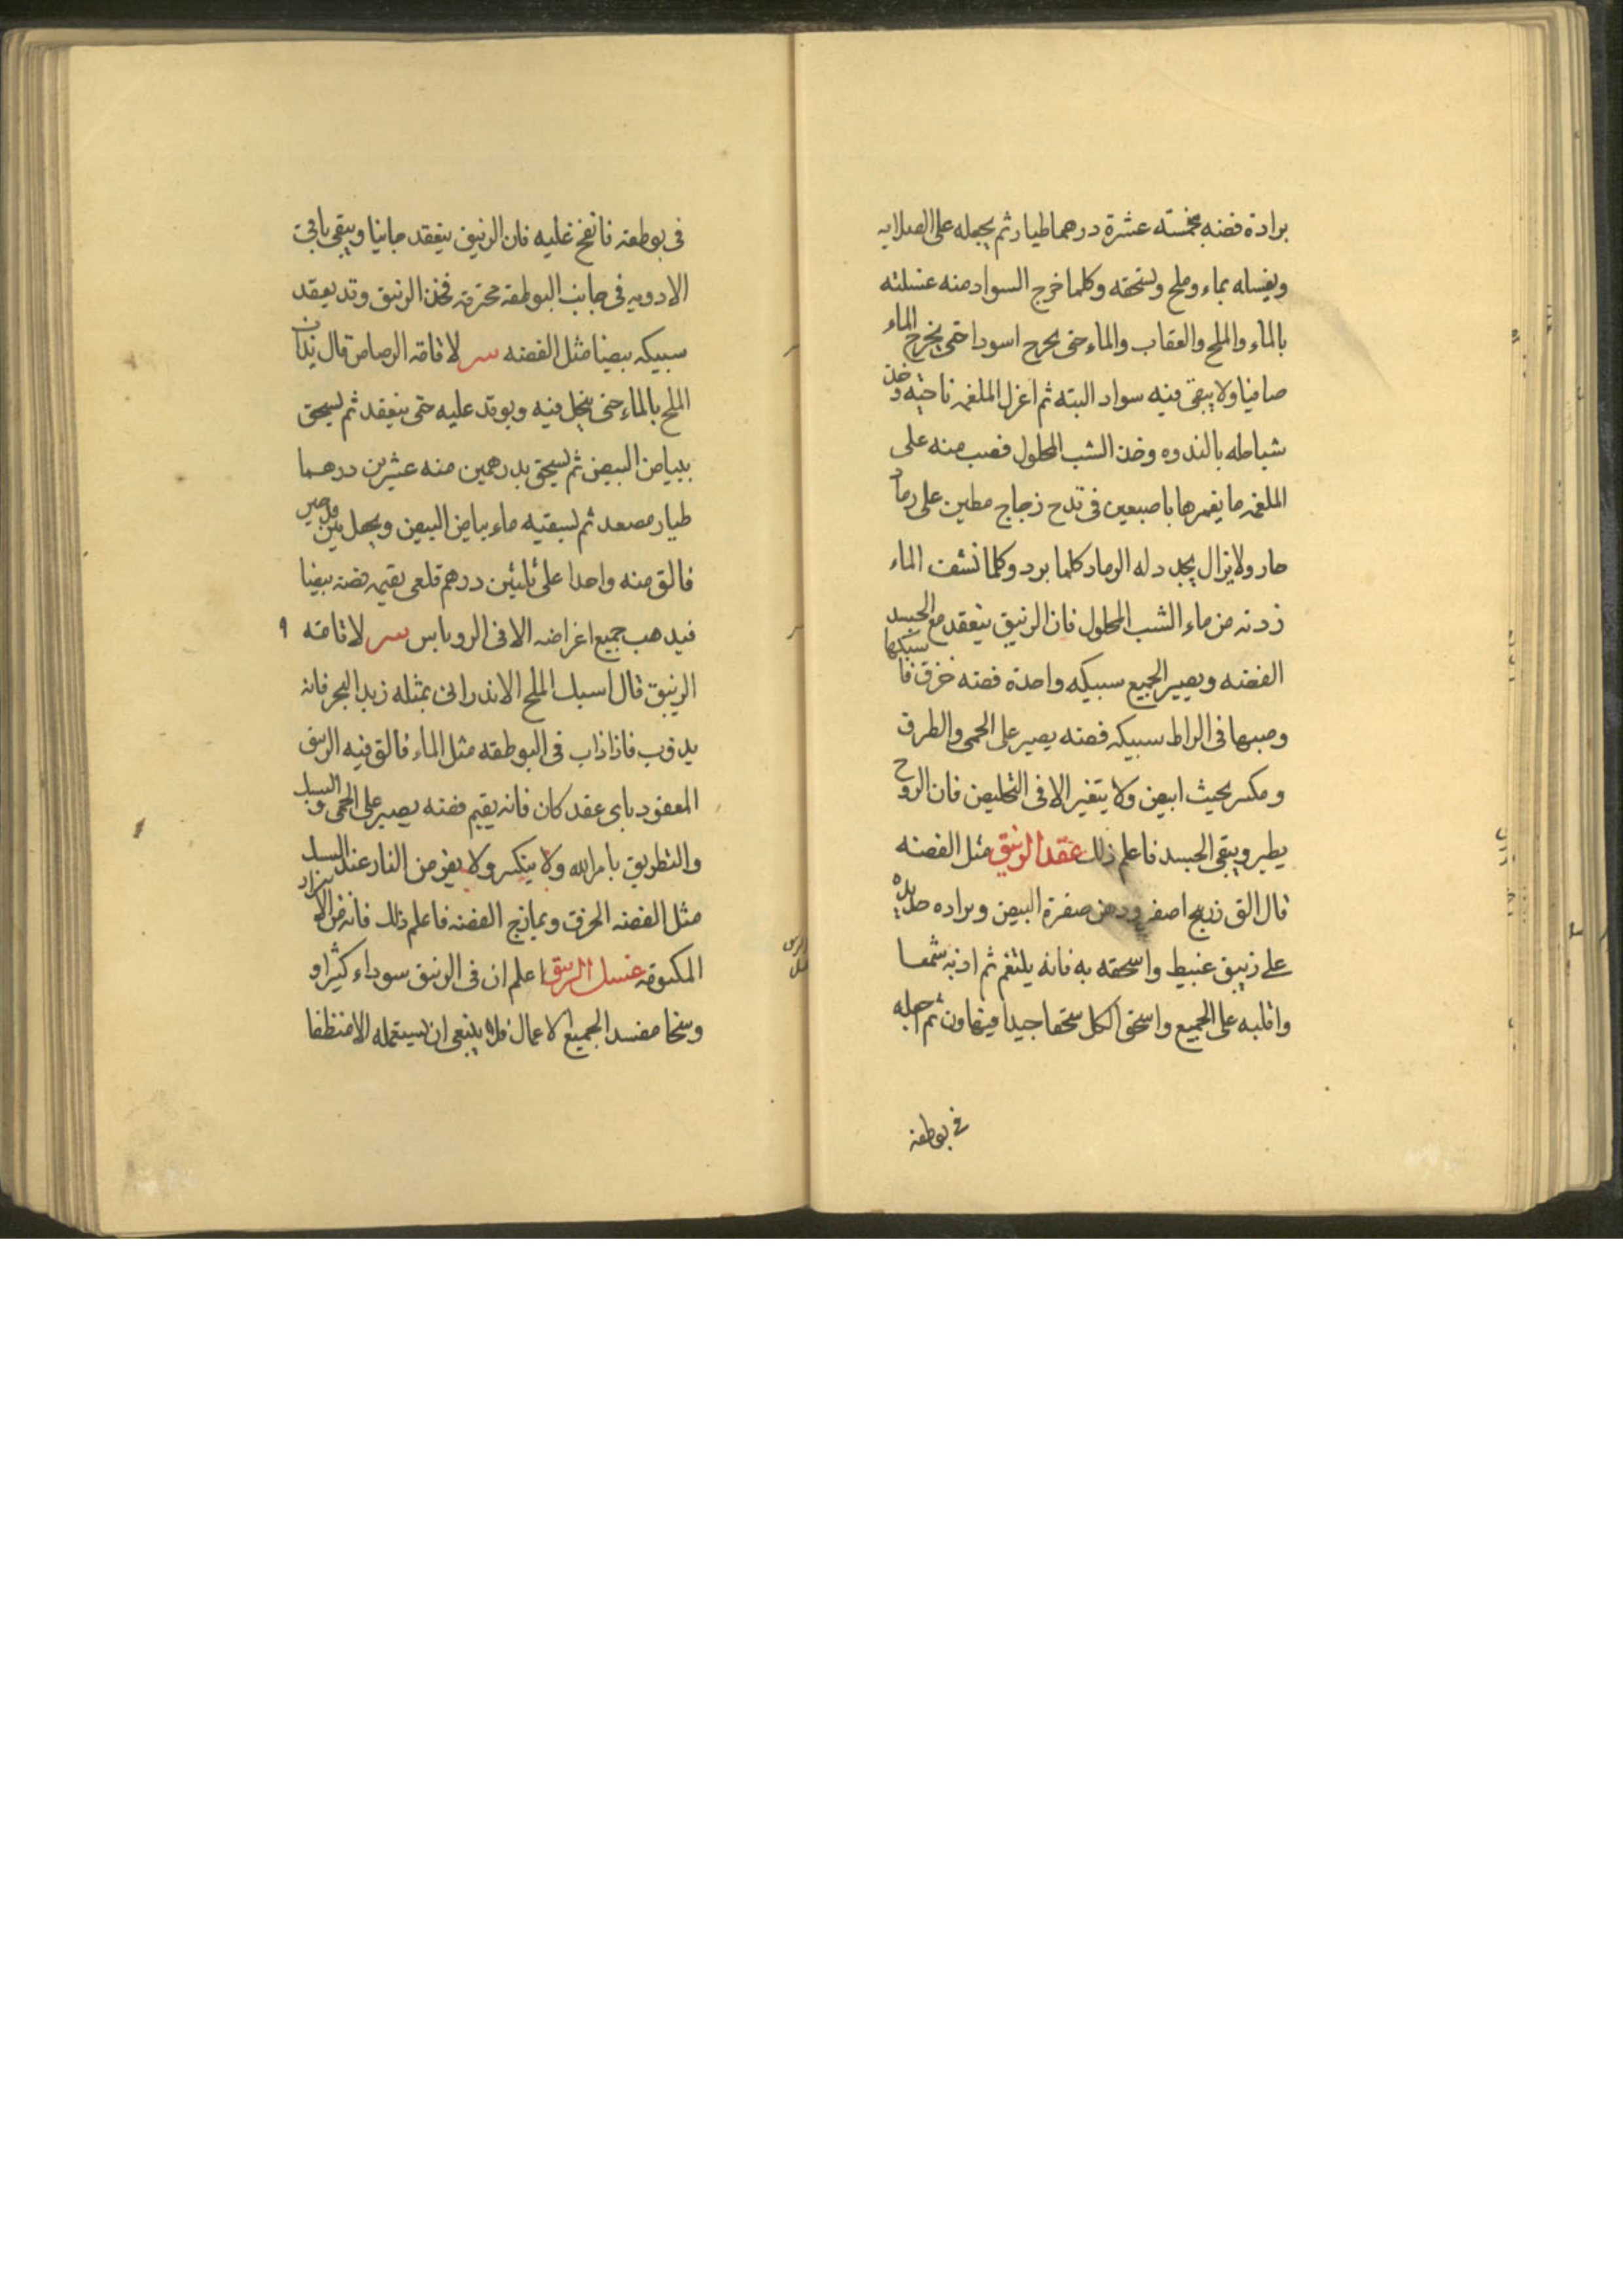 برادة فضه بخمسته عشرة درهما طيار ثم يجعله على الصلايه
ويغسله بماء وملح ويسحقه وكلما خرج السواد منه غسلته
بالماء والملح والعقاب والماء حتى يخرج اسود احتى يخرج الماء
صافيا ولا يبقى فيه سواد البته ثم اعزل الملغمه ناحيه وخذ
شباطله بالندوه وخذ الشب المحلول فصب منه على
الملغمه ما يغمرها باصبعين فى قدح زجاج مطين على رماد
حار ولا يزال يجدد له الرماد كلما برد وكلما نشفت الماء
زدته من ماء الشب المحلول فان الزيبق ينعقد مع الجسد
الفضه ويصير الجميع سبيكه واحدة فضه خرق فاسبكها
وصبها فى الراط سبيكه فضه يصير على الحمى والطرق
ومكسر بحيث ابيض ولا يتغير الا فى التخليص فان الروح
يطير ويبقى الجسد فاعلم ذلك عقد الزيبق مثل الفضه
قال الق زرنيخ اصفر ودهن صفرة البيض وبراده حديده
على زيبق عبيط واسحقه به فانه يلتغم ثم اذبه شمعا
واقلبه على الجميع واسحق الكل سحقا جيدا فيتهاون ثم اجعله
فى بوطقه
فى بوطقه فانفخ عليه فان الزيبق ينعقد جانبا ويبقى باقى
الادويه فى جانب البوطقه محترقه فخذ الزيبق وقد يعقد
سبيكه بيضا مثل الفضه سر لاقامة الرصاص قال ندان
الملح بالماء حتى ينحل فيه ويوقد عليه حتى ينعقد ثم يسحق
ببياض البيض ثم يسحق بدرهمين منه عشرين درهما
طيار مصعد ثم يسقيه ماء بياض البيض ويجعل بين
فالق منه واحدا على ثلثين درهم قلعى يقيمه فضه بيضا
فيدهب جميع اغراضه الا فى الروباس سر لاقامته ٩
الزيبق قال اسبك الملح الاندرانى بمثله زبد البحر فانه
يذوب فاذا ذاب فى البوطقه مثل الماء فالق فيه الزيبق
المعقود باى عقد كان فانه يقيم فضه يصير على الحمى والسبك
والتطريق بامر الله ولا ينكسر ولا يفر من النار عند السبك
مثل الفضه الخرق ويمازج الفضه فاعلم ذلك فانه من الاسرار
المكتومه غسل الزيبق اعلم ان فى الزيبق سوداء كثيرا و
وسخا مفسدا لجميع الاعمال فلا ينبغى ان يستعمله الا منظفا